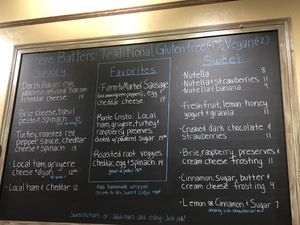 Crepe Batters: Traditional, Gluten free (+1), Vegan (+2)
Savory
Darth Bacon: egg,
jalapeno infused bacon
cheddar cheese 14
Brie cheese, basil
pesto & spinach 12
Turkey, roasted red
pepper sauce, cheddar
cheese & spinach 15
Local ham, gruyere
cheese & dijon
Local ham & cheddar 12
Favorites
Farm to Market Sausage
egg &
cheddar cheese 14
Monte Cristo: Local
ham, gruyere, turkey,
raspberry preserves
dusted w/ powdered sugar
Roasted root veggies
cheddar, egg & spinach 14
Add homemade whipped
cream to any sweet crepe
Sweet
Nutella 8
Nutella & strawberries 11
Nutella & banana 11
Fresh fruit, lemon honey
yogurt & granola 11
Crushed dark chocolate &
strawberries 11
Brie, raspberry preserves &
cream cheese frosting 11
Cinnamon, sugar, butter &
cream cheese frosting 9
Lemon & Cinnamon & Sugar 7
Substitutions or additions are okay! Just ask!